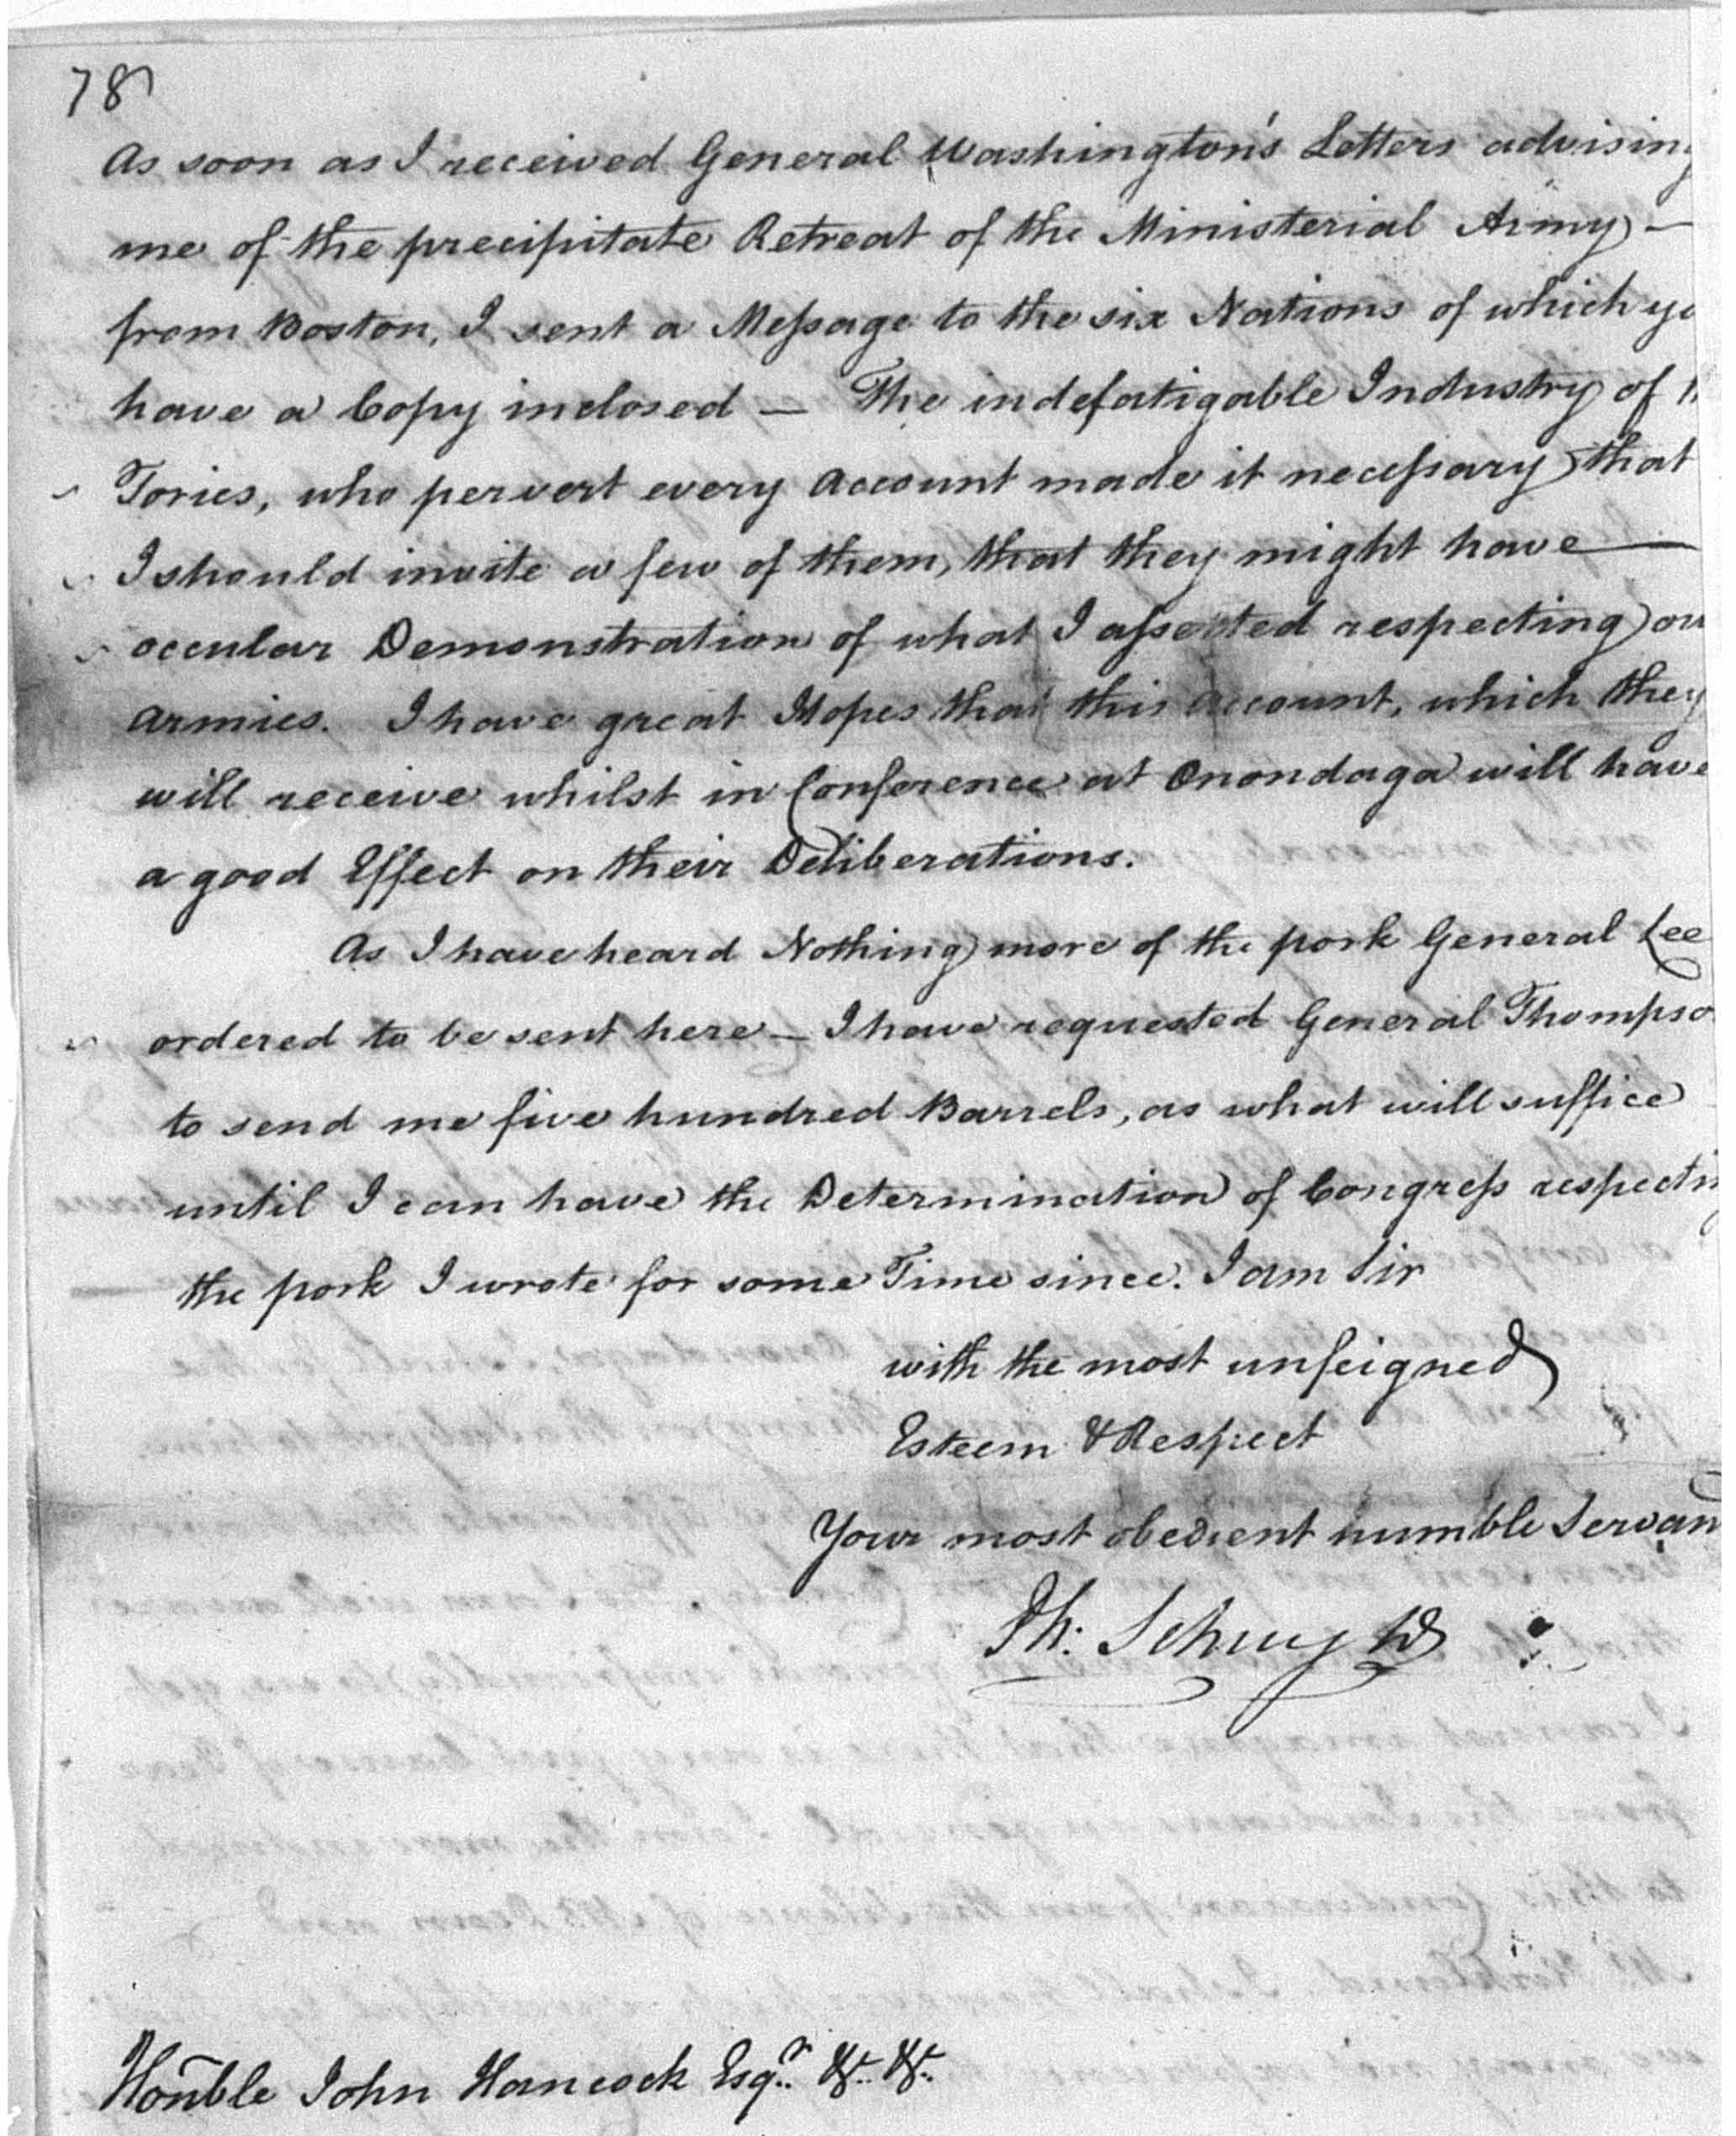 78
As soon as I received General Washington's Letters advising
me of the precipitate Retreat of the Ministerial Army –
from Boston, I sent a Message to the six Nations of which yo
have a Copy inclosed – The indefatigable Industry of
Tories, who pervert every Account made it necessary that
I should invite a few of them, that they might have –
occular Demonstration of what I asserted respecting ou
Armies. I have great Hopes that this Account, which they
will receive whilst in Conference at Onondaga will have
a good Effect on their Deliberations.
As I have heard Nothing more of the pork General Lee
ordered to be sent here – I have requested General Thompso
to send me five hundred Barrels, as what will suffice
until I can have the Determination of Congress respectin
the pork I wrote for some Time since. I am Sir
with the most unfeigned
Esteem & Respect
Your most obedient humble Servan
Ph: Schuyler
Honble John Hancock Esqr. &c. &c.